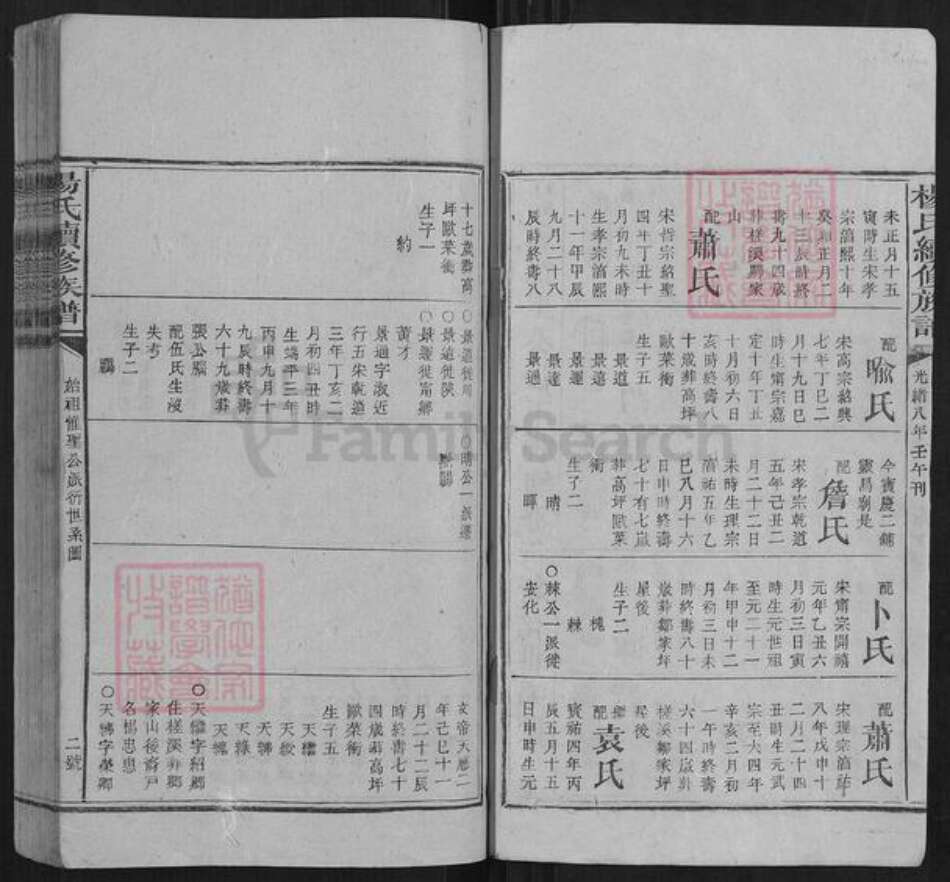 楊氏續修族譜
光緒八年壬午刊
未正月十五
寅時生宋孝
宗淳熙十年
癸卯正月二
十三辰時終
壽九十四歲
葬槎溪鄒家
山
配蕭氏
宋哲宗紹聖
四年丁丑十
月初九未時
生孝宗淳熙
十一年甲辰
九月二十八
辰時終壽八
配喻氏
宋高宗紹興
七年丁巳二
月十九日巳
時生甯宗嘉
定十年丁丑
十月初六日
亥時終壽八
十歲葬高坪
歐菜衝
生子五
景道
景遠
景逵
景達
景過
今寶慶二鋪
靈昜廟是
配詹氏
宋孝宗乾道
五年己丑二
月二十二日
未時生理宗
淳祐五年乙
巳八月十六
日申時終壽
七十有七歲
葬高坪歐菜
衝
生子二
晴
暉
配卜氏
宋甯宗開禧
元年乙丑六
月初三日寅
時生元世祖
至元二十一
年甲申十二
月初三日未
時終壽八十
歲葬鄒家坪
屋後
生子二
槐
棘
○棘公一派徙
安化
配蕭氏
宋理宗淳祐
八年戊申十
月二十四
丑時生元武
宗至大四年
辛亥二月初
一午時終壽
六十四歲葬
槎溪鄒家坪
屋後
繼配袁氏
寶祐四年丙
辰五月十五
日申時生元
十七歲葬高
坪歐菜衝
生子一
約
○景遠徙
○景逵徙
○景達徙甯鄉
黃才
景過字淑近
行五宋乾道
三年丁亥二
月初四丑時
生端平三年
丙申九月十
九辰時終壽
六十九歲葬
張公腦
配伍氏生歿
失考
生子二
○晴公一派遷
文帝天曆二
年己巳十一
月二十二辰
時終壽七十
四歲葬高坪
歐菜衝
生子五
天
天
天
天
天
○天字紹鄉
住槎溪井鄉
家山後裔戸
名楊忠忠
○天字榮鄉
楊氏續修族譜
始祖惟聖公派衍世系圖
二號
FamilySearch